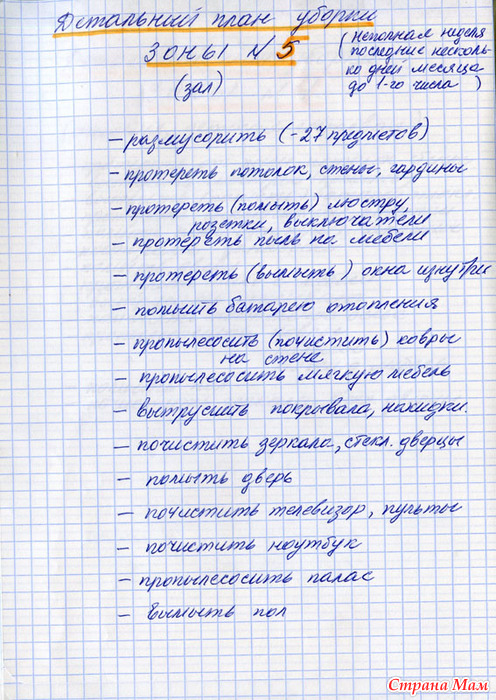 Детальный план уборки
Зоны №5
(зал)
(неполная неделя
последние несколь-
ко дней месяца
до 1-го числа)
– размусорить (-27 предметов)
– протереть потолок, стены, гардины
– протереть (помыть) люстру,
розетки, выключатели
– протереть пыль на мебели
– протереть (вымыть) окна изнутри
– помыть батарею отопления
– пропылесосить (почистить) ковры
на стене
– пропылесосить мягкую мебель
– вытрусить покрывала, накидки.
– почистить зеркала, стекл. дверцы
– помыть дверь
– почистить телевизор, пульты
– почистить ноутбук
– пропылесосить палас
– вымыть пол
Страна Мам